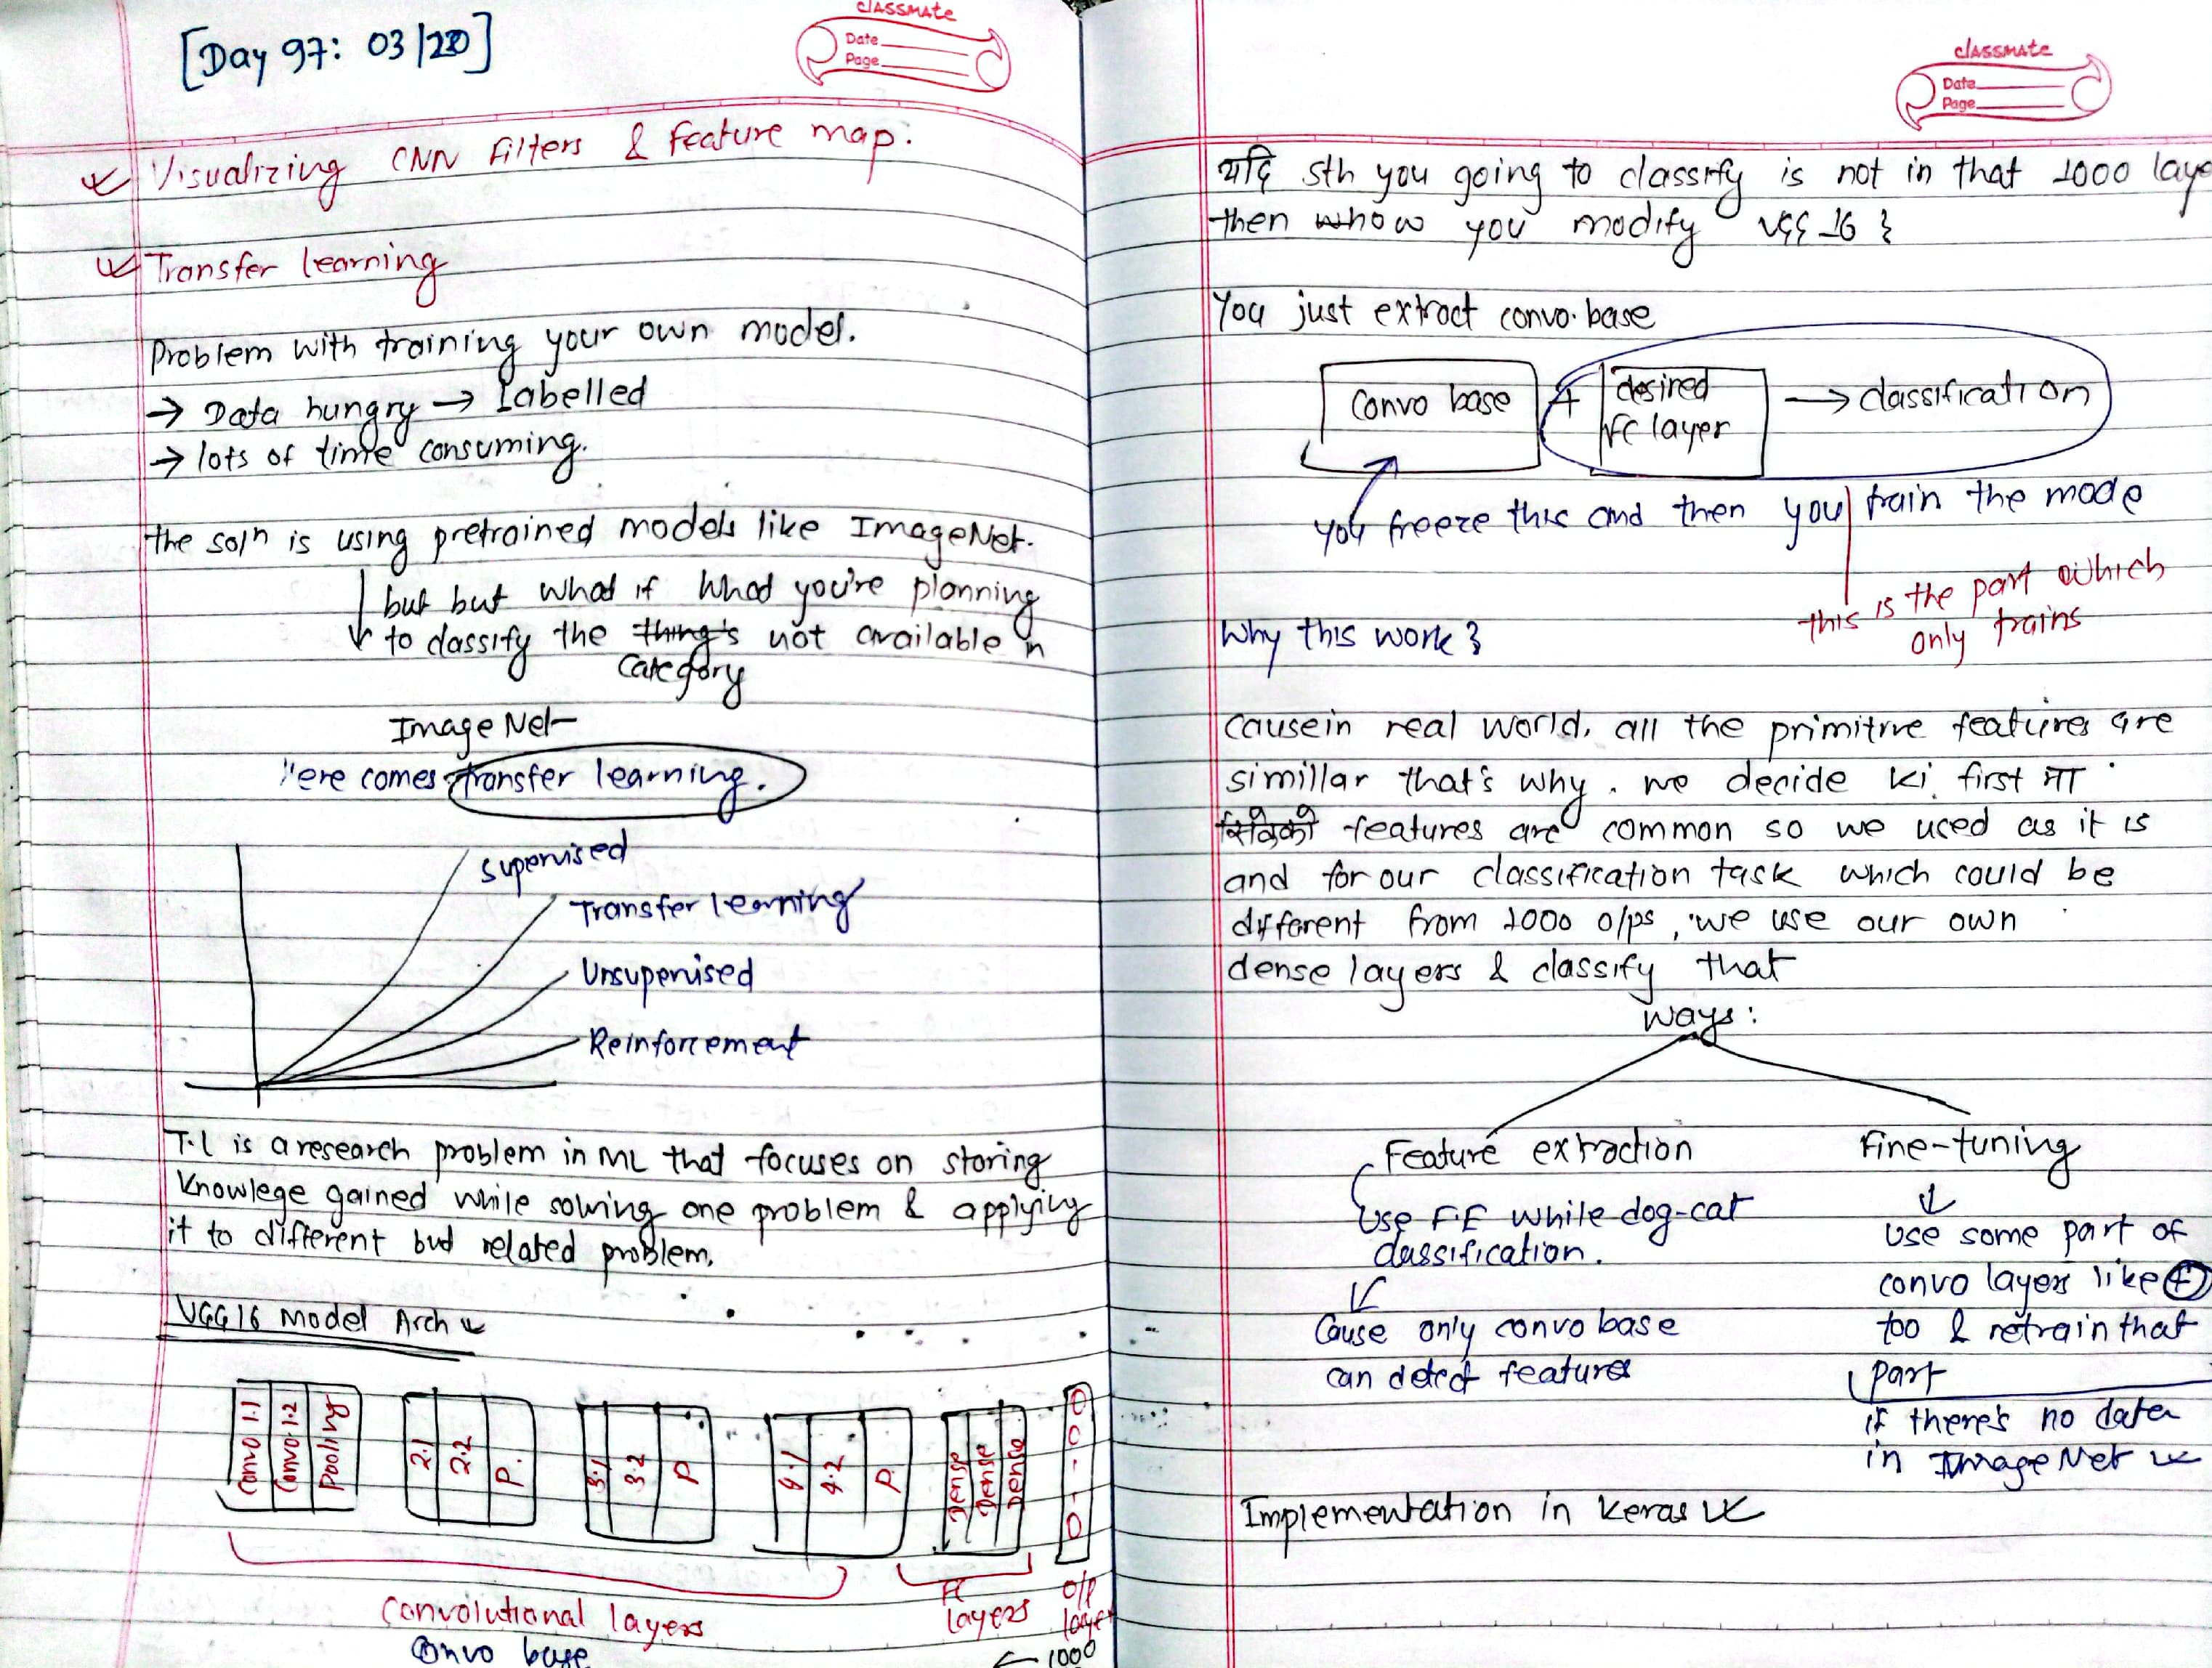 [Day 97: 03/20]
classmate
Date
Page
Visualizing CNN Filters & feature map.
Transfer learning
Problem with training your own model.
→ Data hungry → Labelled
→ lots of time consuming.
the solⁿ is using pretrained models like ImageNet.
but but what if what you're planning
to classify the thing's not available in
category
ImageNet
Here comes transfer learning.
supervised
Transfer learning
Unsupervised
Reinforcement
T.L is a research problem in ML that focuses on storing
knowlege gained while solving one problem & applying
it to different but related problem.
VGG16 Model Arch
Convo 1.1
Convo 1.2
Pooling
2.1
2.2
P.
3.1
3.2
P
4.1
4.2
P.
Dense
Dense
Dense
Convolutional layers
Convo base
FC
layers
O/P
layer
← 1000
classmate
Date
Page
यदि sth you going to classify is not in that 1000 laye
then how you modify VGG 16 ?
You just extract convo. base
Convo base + desired FC layer → classification
you freeze this and then you train the mode
this is the part which
only trains
Why this work ?
Cause in real world, all the primitive features are
simillar that's why. we decide ki first मा
features are common so we used as it is
and for our classification task which could be
different from 1000 o/ps, we use our own
dense layers & classify that
Ways:
Feature extraction
Use F.E while dog-cat
classification.
Cause only convo base
can detect features
Fine-tuning
Use some part of
convo layers like
too & retrain that
part
if there's no data
in ImageNet
Implementation in Keras